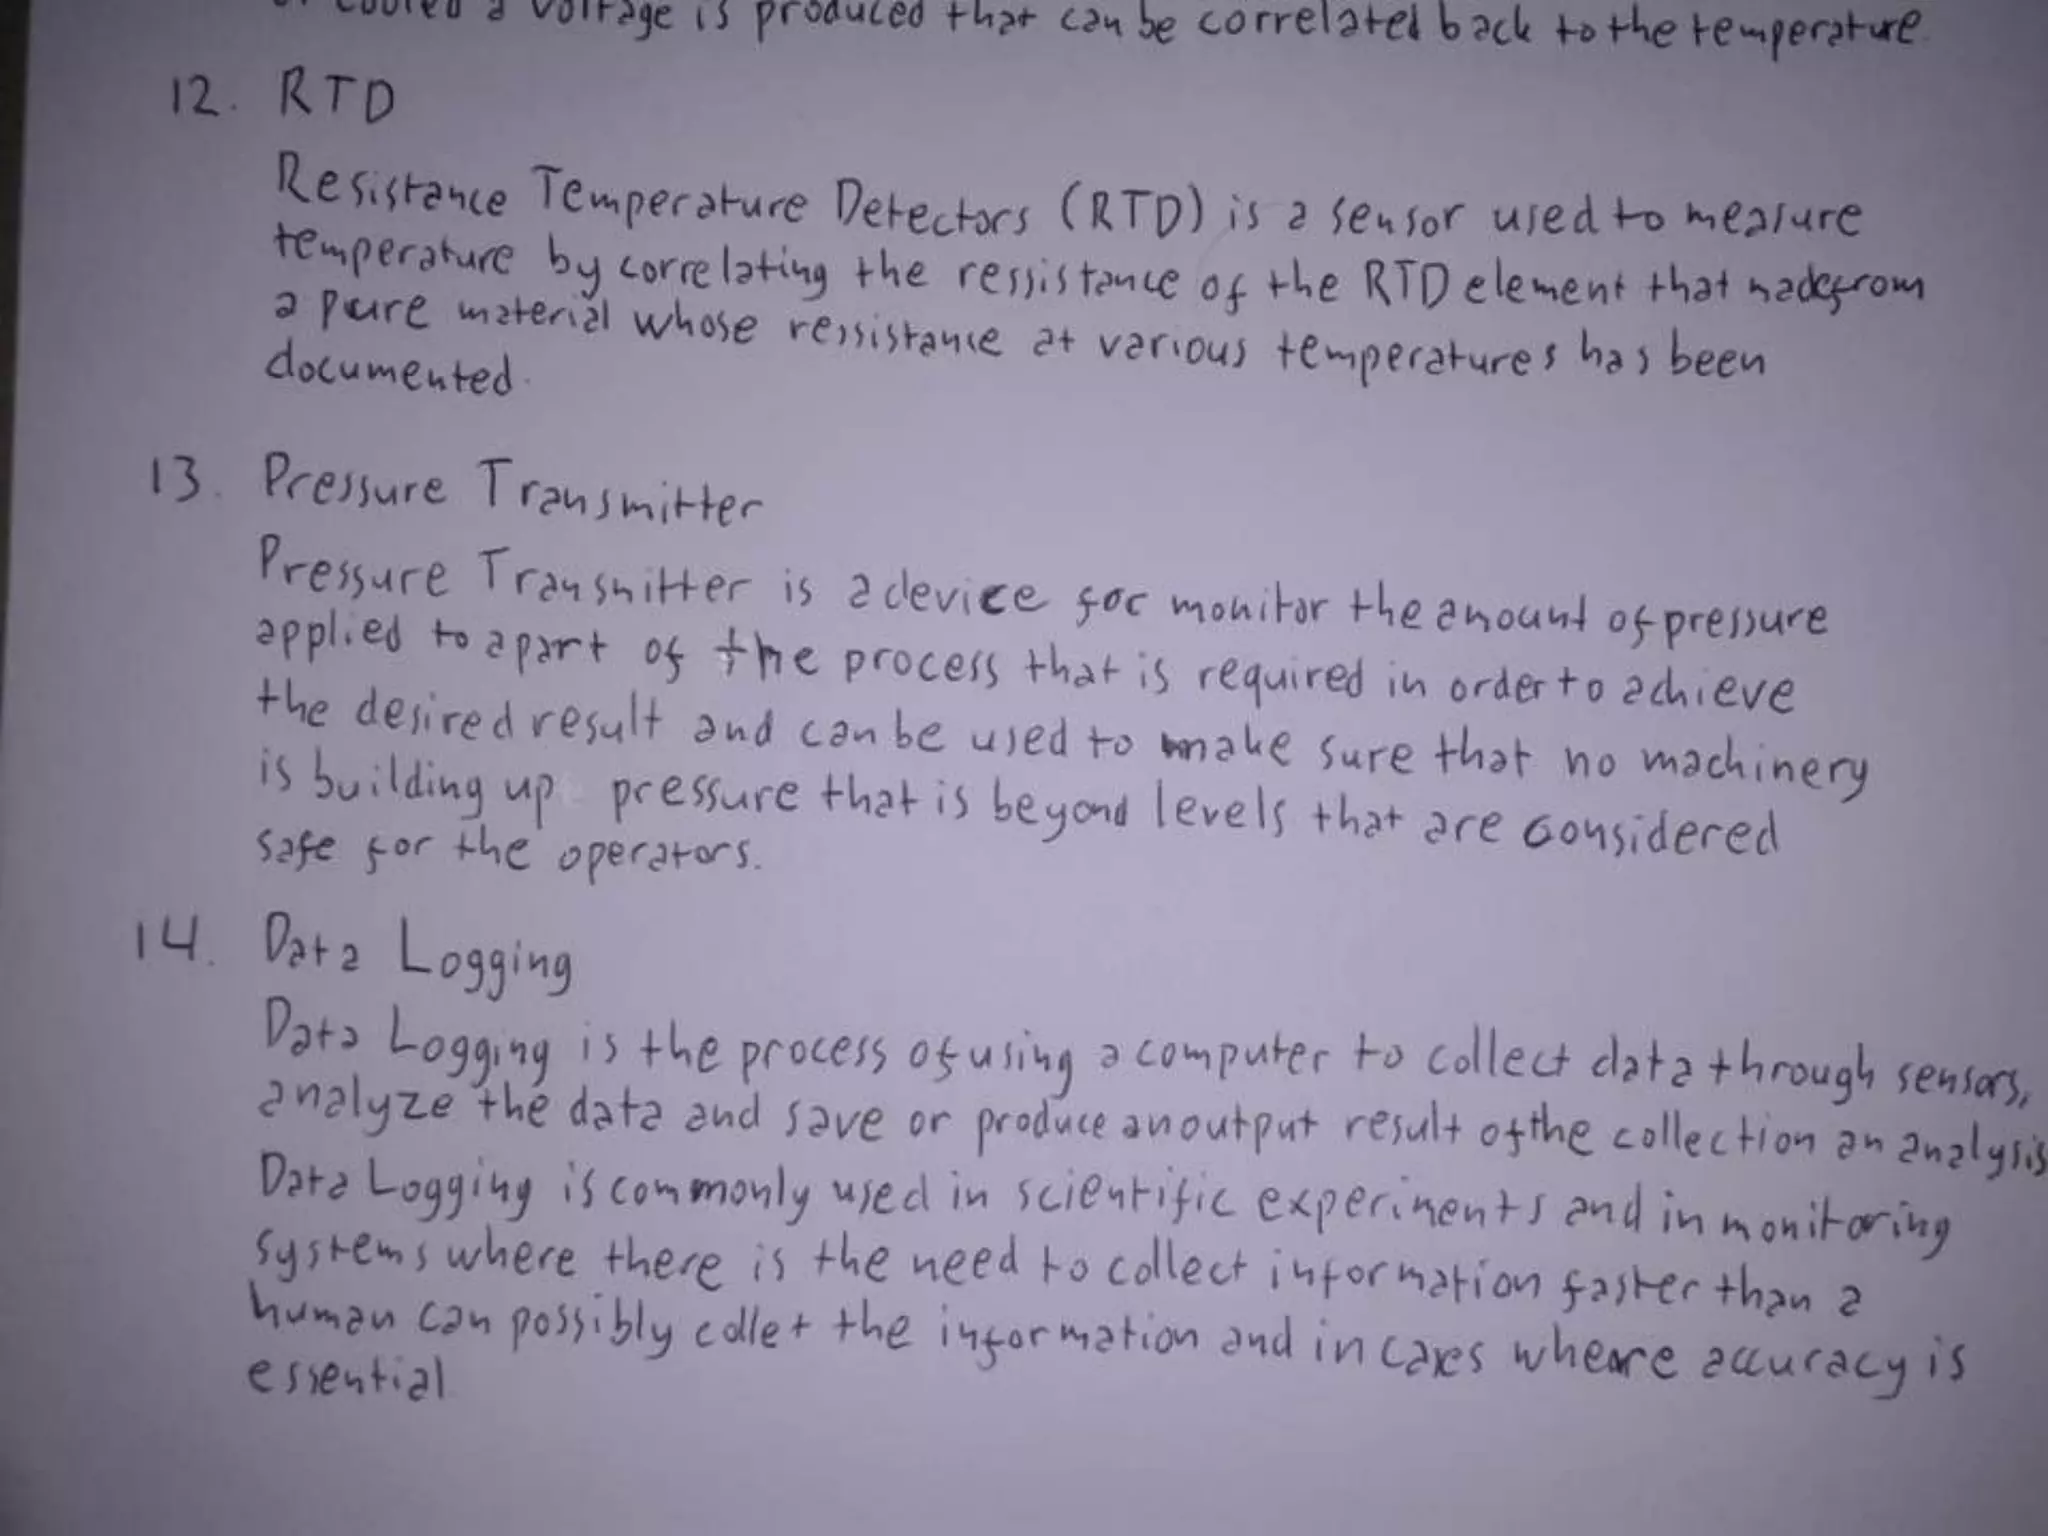 or cooled a voltage is produced that can be correlated back to the temperature.
12. RTD
Resistance Temperature Detectors (RTD) is a sensor used to measure
temperature by correlating the ressistance of the RTD element that made from
a pure material whose ressistance at various temperatures has been
documented.
13. Pressure Transmitter
Pressure Transmitter is a device for monitor the amount of pressure
applied to a part of the process that is required in order to achieve
the desired result and can be used to make sure that no machinery
is building up pressure that is beyond levels that are considered
safe for the operators.
14. Data Logging
Data Logging is the process of using a computer to collect data through sensors,
analyze the data and save or produce an output result of the collection an analysis
Data Logging is commonly used in scientific experiments and in monitoring
systems where there is the need to collect information faster than a
human can possibly collet the information and in cases where accuracy is
essential